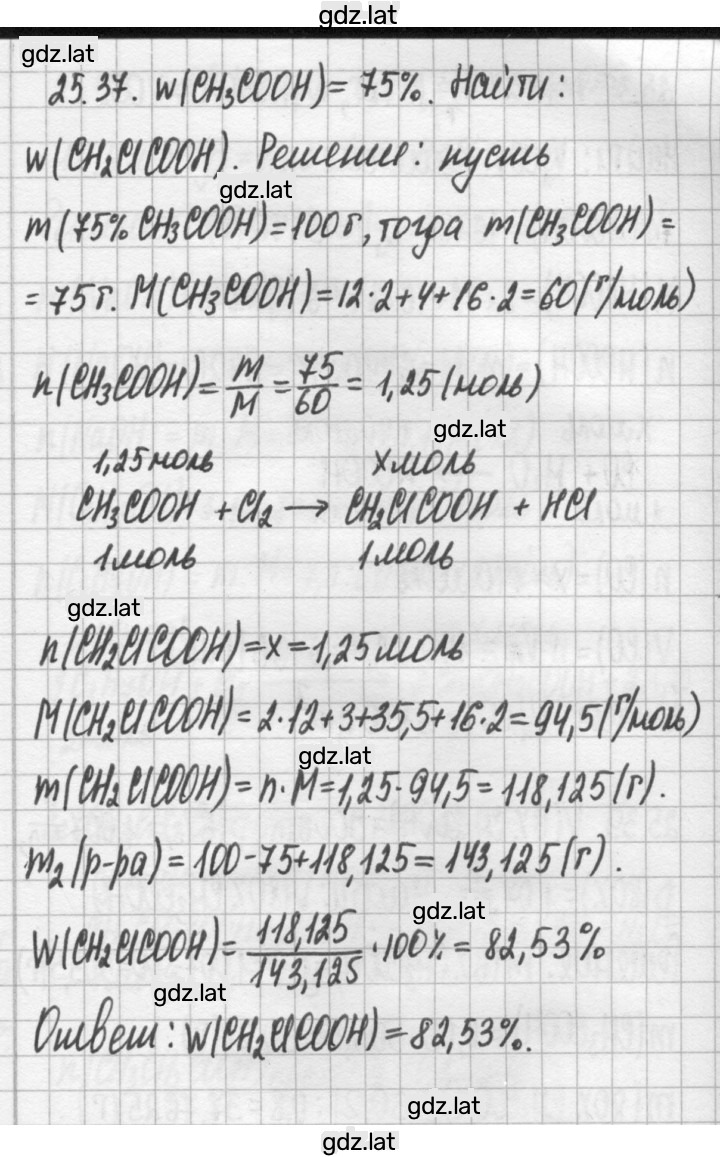 gdz.lat
gdz.lat
25.37. w(CH₃COOH) = 75%. Найти:
w(CH₂ClCOOH). Решение: пусть
gdz.lat
m(75% CH₃COOH) = 100 г, тогда m(CH₃COOH) =
= 75 г. M(CH₃COOH) = 12·2+4+16·2 = 60 (г/моль)
n(CH₃COOH) = m/M = 75/60 = 1,25 (моль)
gdz.lat
1,25 моль х моль
CH₃COOH + Cl₂ → CH₂ClCOOH + HCl
1 моль 1 моль
gdz.lat
n(CH₂ClCOOH) = x = 1,25 моль
M(CH₂ClCOOH) = 2·12+3+35,5+16·2 = 94,5 (г/моль)
gdz.lat
m(CH₂ClCOOH) = n·M = 1,25·94,5 = 118,125 (г).
m₂(р-ра) = 100-75+118,125 = 143,125 (г).
gdz.lat
W(CH₂ClCOOH) = 118,125/143,125 ·100% = 82,53%
gdz.lat
Ответ: w(CH₂ClCOOH) = 82,53%.
gdz.lat
gdz.lat